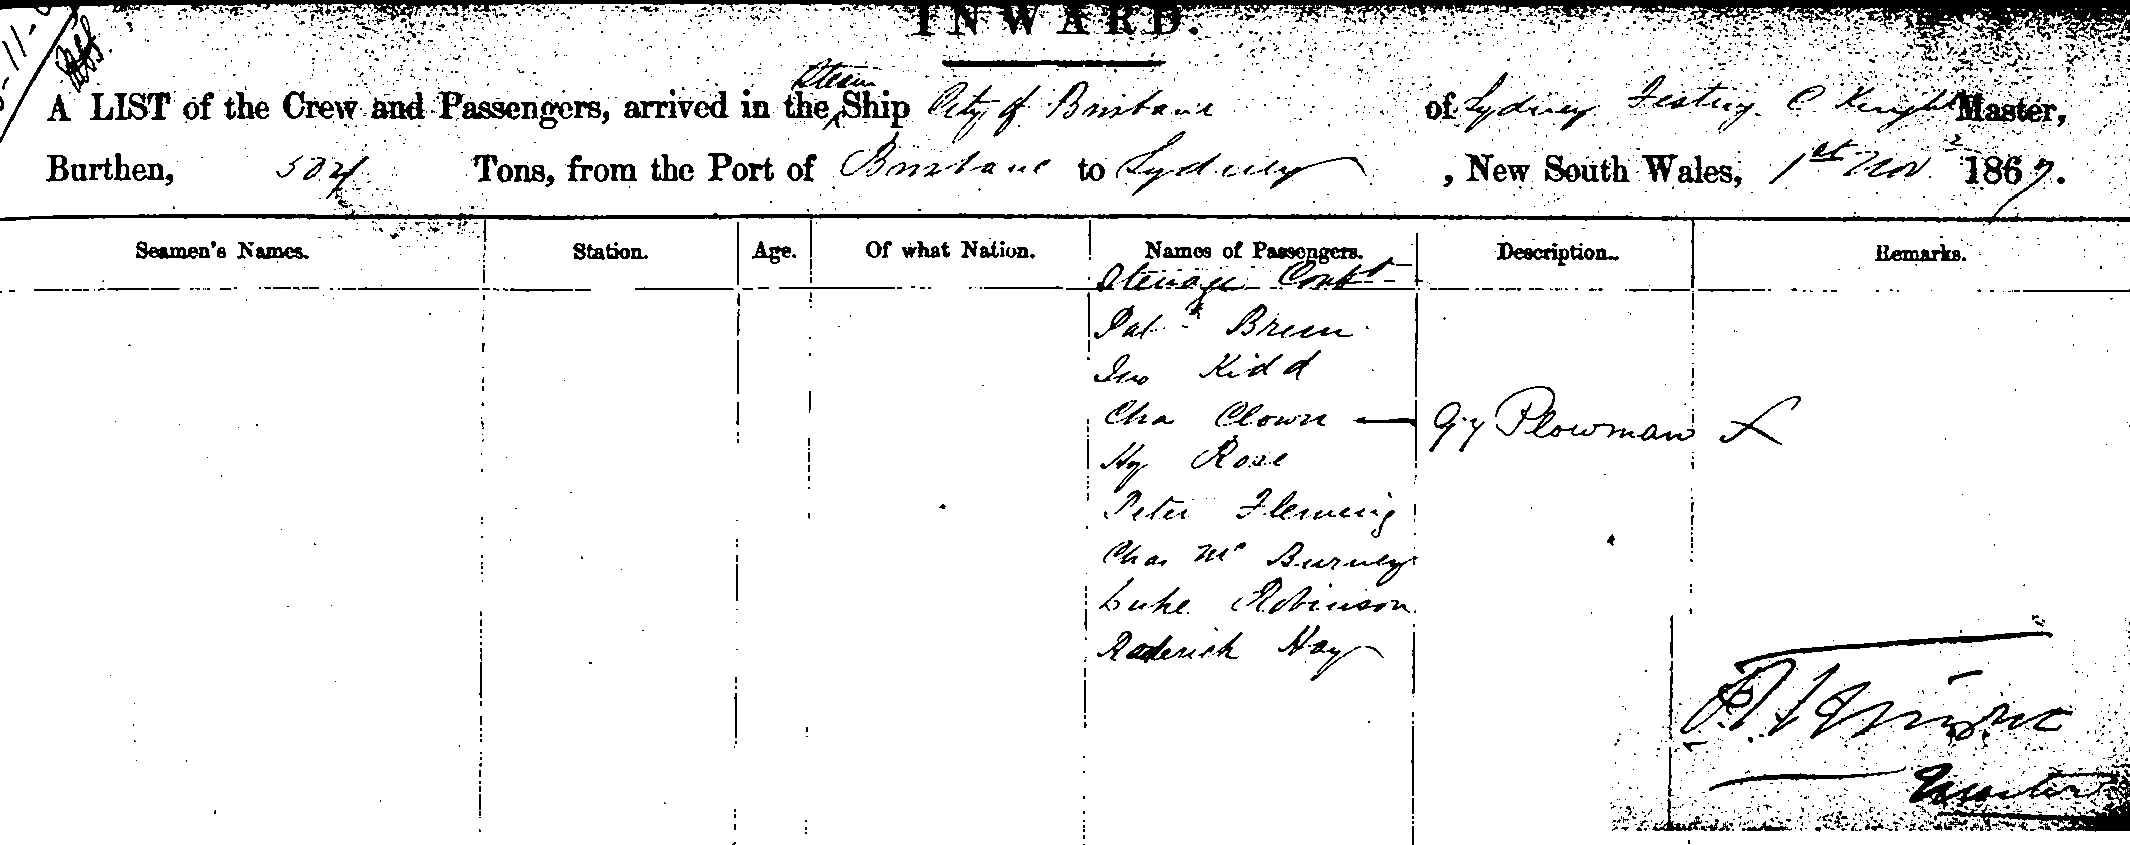 INWARD.
A LIST of the Crew and Passengers, arrived in the Steam Ship City of Brisbane of Sydney Festing. C Knight Master,
Burthen, 504 Tons, from the Port of Brisbane to Sydney, New South Wales, 1st Nov 1867.
Seamen's Names. Station. Age. Of what Nation. Names of Passengers. Description. Remarks.
Steerage Contd
Patk Breen
Jno Kidd
Cha Clown — Gy Plowman X
Hy Rose
Peter Fleming
Chas Mc Burney
Luke Robinson
Roderick Hay
Knight
Master